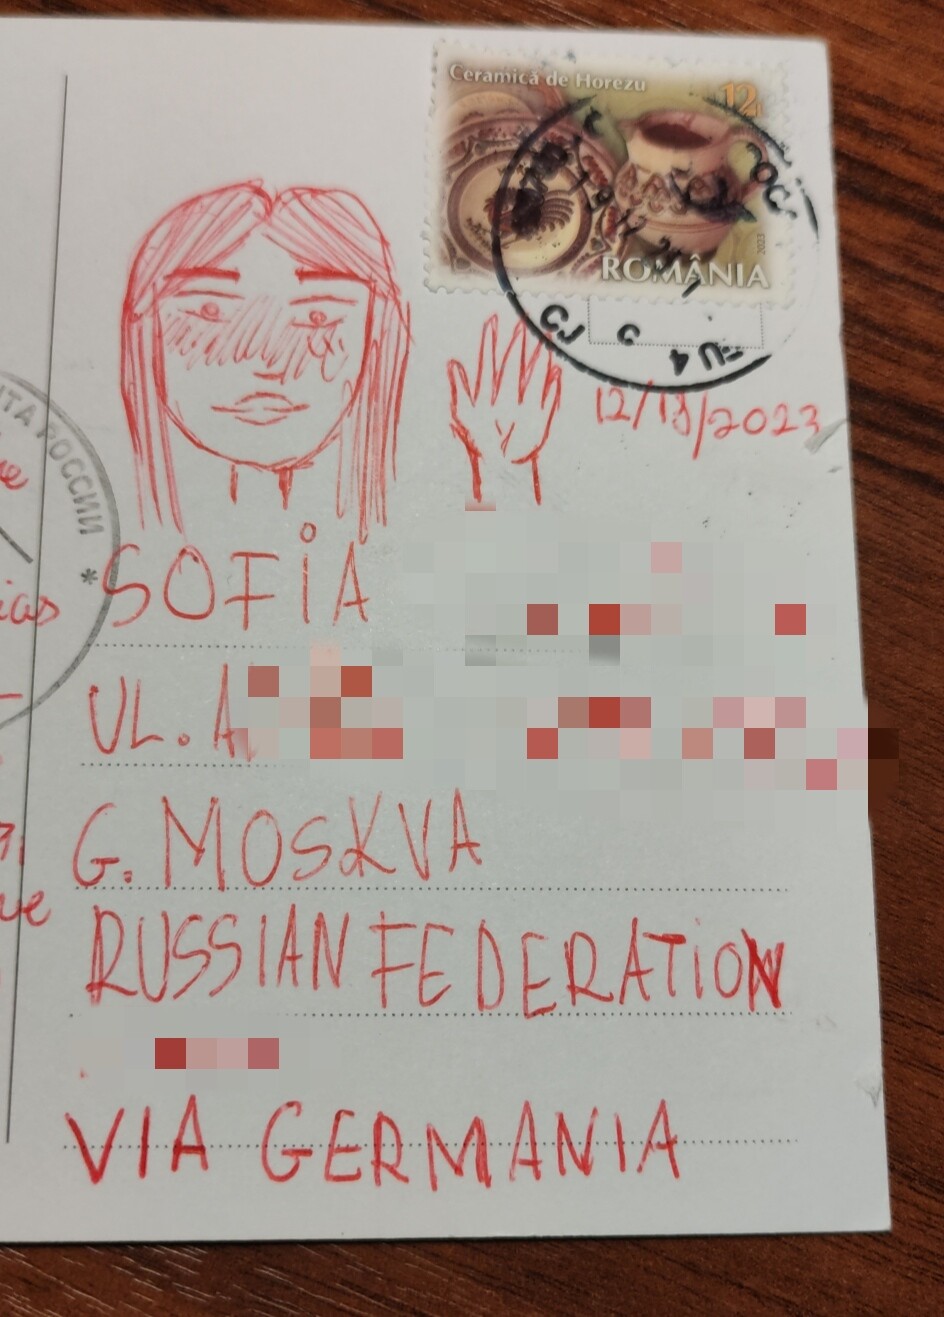 Ceramică de Horezu
12L
2023
ROMÂNIA
CJ
12/13/2023
РОССИИ *
ias
SOFIA
UL. A
G. MOSKVA
ue
RUSSIAN FEDERATION
VIA GERMANIA